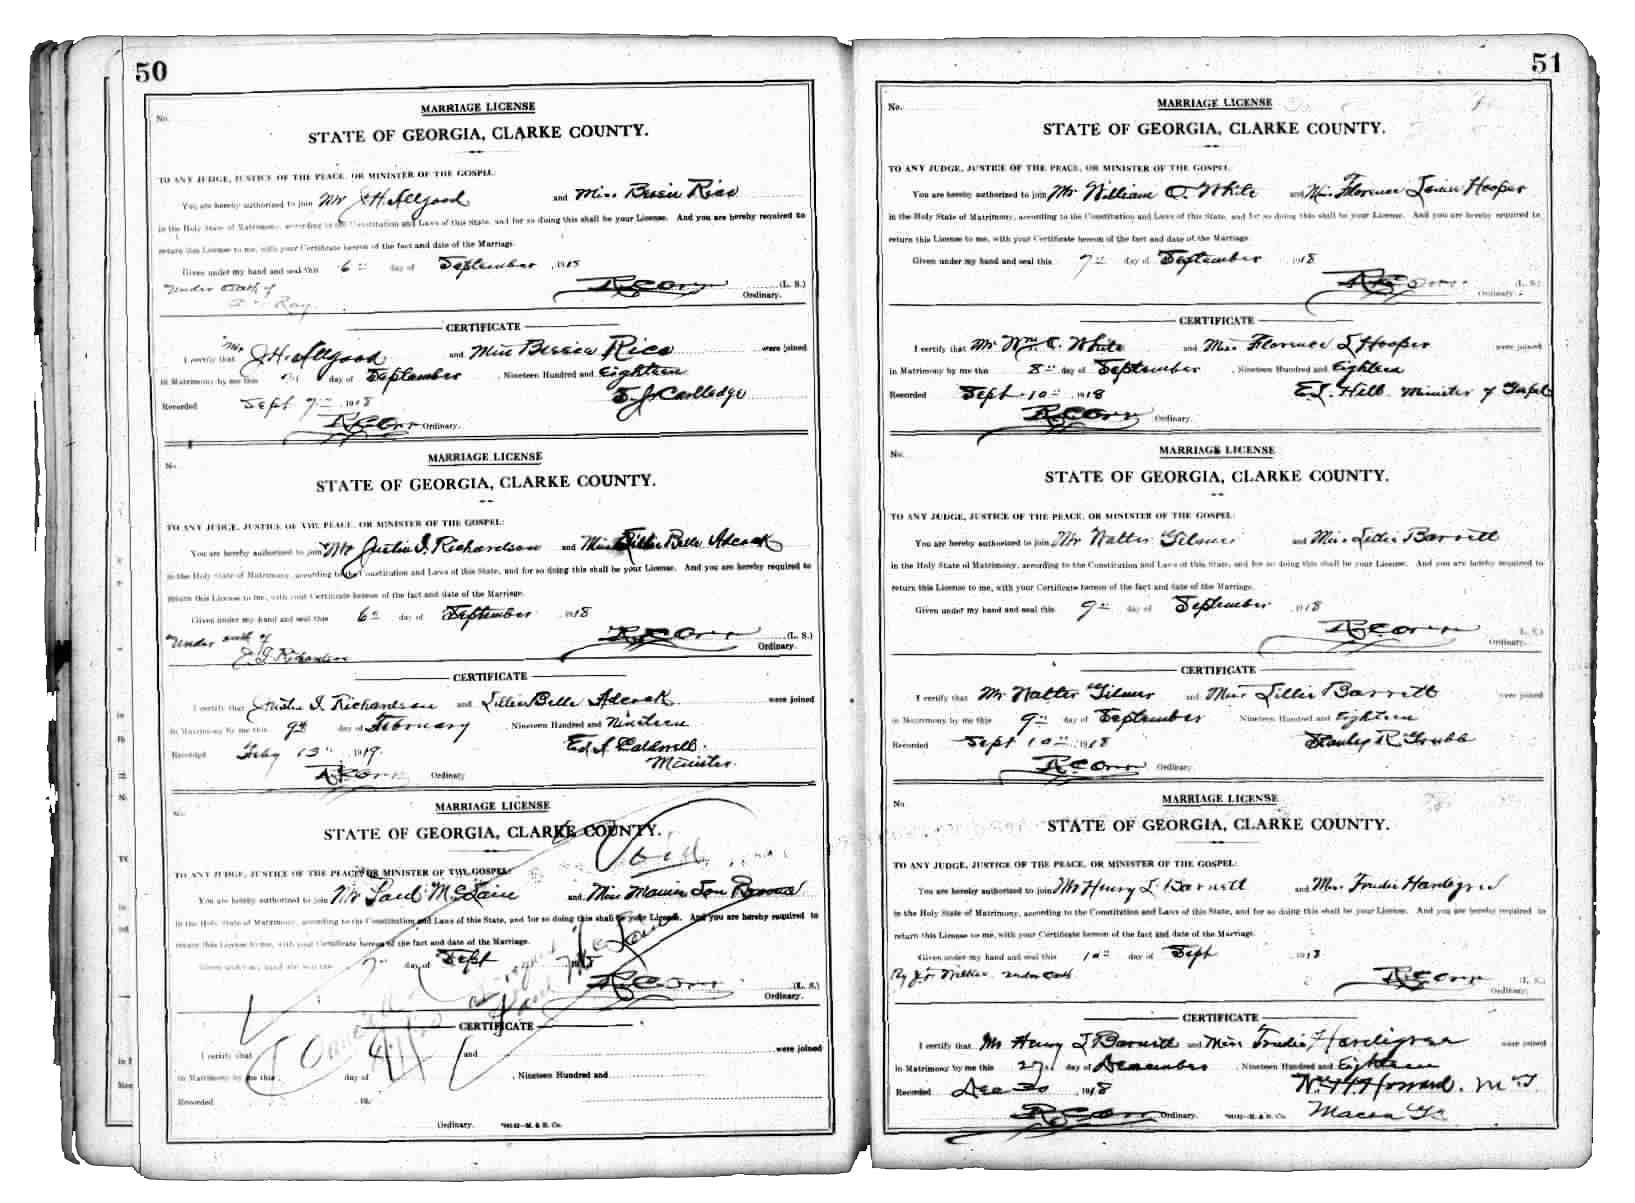 50
MARRIAGE LICENSE
No.
STATE OF GEORGIA, CLARKE COUNTY.
TO ANY JUDGE, JUSTICE OF THE PEACE, OR MINISTER OF THE GOSPEL:
You are hereby authorized to join Mr J H Allgood and Miss Bessie Rice
in the Holy State of Matrimony, according to the Constitution and Laws of this State, and for so doing this shall be your License. And you are hereby required to
return this License to me, with your Certificate hereon of the fact and date of the Marriage.
Given under my hand and seal this 6th day of September, 1918
Under oath of R C Orr (L. S.)
Ray Ordinary.
CERTIFICATE
I certify that Mr J H Allgood and Miss Bessie Rice were joined
in Matrimony by me this day of September, Nineteen Hundred and Eighteen
Recorded Sept 7th 1918
R C Orr Ordinary.
MARRIAGE LICENSE
No.
STATE OF GEORGIA, CLARKE COUNTY.
TO ANY JUDGE, JUSTICE OF THE PEACE, OR MINISTER OF THE GOSPEL:
You are hereby authorized to join Mr Justin I. Richardson and Miss Lillie Belle Adcock
in the Holy State of Matrimony, according to the Constitution and Laws of this State, and for so doing this shall be your License. And you are hereby required to
return this License to me, with your Certificate hereon of the fact and date of the Marriage.
Given under my hand and seal this 6th day of September 1918
Under oath of R C Orr (L. S.)
Richardson Ordinary.
CERTIFICATE
I certify that Justin I. Richardson and Lillie Belle Adcock were joined
in Matrimony by me this 9th day of February, Nineteen Hundred and Nineteen
Recorded Feby 13th 1919. Ed S. Caldwell.
R C Orr Ordinary Minister.
MARRIAGE LICENSE
No.
STATE OF GEORGIA, CLARKE COUNTY.
Void
TO ANY JUDGE, JUSTICE OF THE PEACE, OR MINISTER OF THE GOSPEL:
You are hereby authorized to join Mr Paul McLain and Miss Mamie Lou
in the Holy State of Matrimony, according to the Constitution and Laws of this State, and for so doing this shall be your License. And you are hereby required to
return this License to me, with your Certificate hereon of the fact and date of the Marriage.
Given under my hand and seal this 7th day of Sept 1918
R C Orr (L. S.)
Ordinary.
CERTIFICATE
I certify that and were joined
in Matrimony by me this day of, Nineteen Hundred and
Recorded, 19
Ordinary.
51
MARRIAGE LICENSE
No.
STATE OF GEORGIA, CLARKE COUNTY.
TO ANY JUDGE, JUSTICE OF THE PEACE, OR MINISTER OF THE GOSPEL:
You are hereby authorized to join Mr William O. White and Miss Florence Hooper
in the Holy State of Matrimony, according to the Constitution and Laws of this State, and for so doing this shall be your License. And you are hereby required to
return this License to me, with your Certificate hereon of the fact and date of the Marriage.
Given under my hand and seal this 7th day of September 1918
R C Orr (L. S.)
Ordinary.
CERTIFICATE
I certify that Mr Wm O. White and Miss Florence L Hooper were joined
in Matrimony by me this 8th day of September, Nineteen Hundred and Eighteen
Recorded Sept 10th 1918 Minister of Gospel
R C Orr Ordinary.
MARRIAGE LICENSE
No.
STATE OF GEORGIA, CLARKE COUNTY.
TO ANY JUDGE, JUSTICE OF THE PEACE, OR MINISTER OF THE GOSPEL:
You are hereby authorized to join Mr Walter Gilmer and Miss Lillie Barrett
in the Holy State of Matrimony, according to the Constitution and Laws of this State, and for so doing this shall be your License. And you are hereby required to
return this License to me, with your Certificate hereon of the fact and date of the Marriage.
Given under my hand and seal this 9th day of September 1918
R C Orr (L. S.)
Ordinary.
CERTIFICATE
I certify that Mr Walter Gilmer and Miss Lillie Barrett were joined
in Matrimony by me this 9th day of September Nineteen Hundred and Eighteen
Recorded Sept 10th 1918 Stanley R. Grubb
R C Orr Ordinary.
MARRIAGE LICENSE
No.
STATE OF GEORGIA, CLARKE COUNTY.
TO ANY JUDGE, JUSTICE OF THE PEACE, OR MINISTER OF THE GOSPEL:
You are hereby authorized to join Mr Henry L Barnett and Miss Trudie Hardigree
in the Holy State of Matrimony, according to the Constitution and Laws of this State, and for so doing this shall be your License. And you are hereby required to
return this License to me, with your Certificate hereon of the fact and date of the Marriage.
Given under my hand and seal this 10th day of Sept 1918
under oath R C Orr (L. S.)
Ordinary.
CERTIFICATE
I certify that Mr Henry L Barnett and Miss Trudie Hardigree were joined
in Matrimony by me this 27 day of December, Nineteen Hundred and Eighteen
Recorded Dec 30, 1918 Howard. M G.
R C Orr Ordinary. Macon Ga